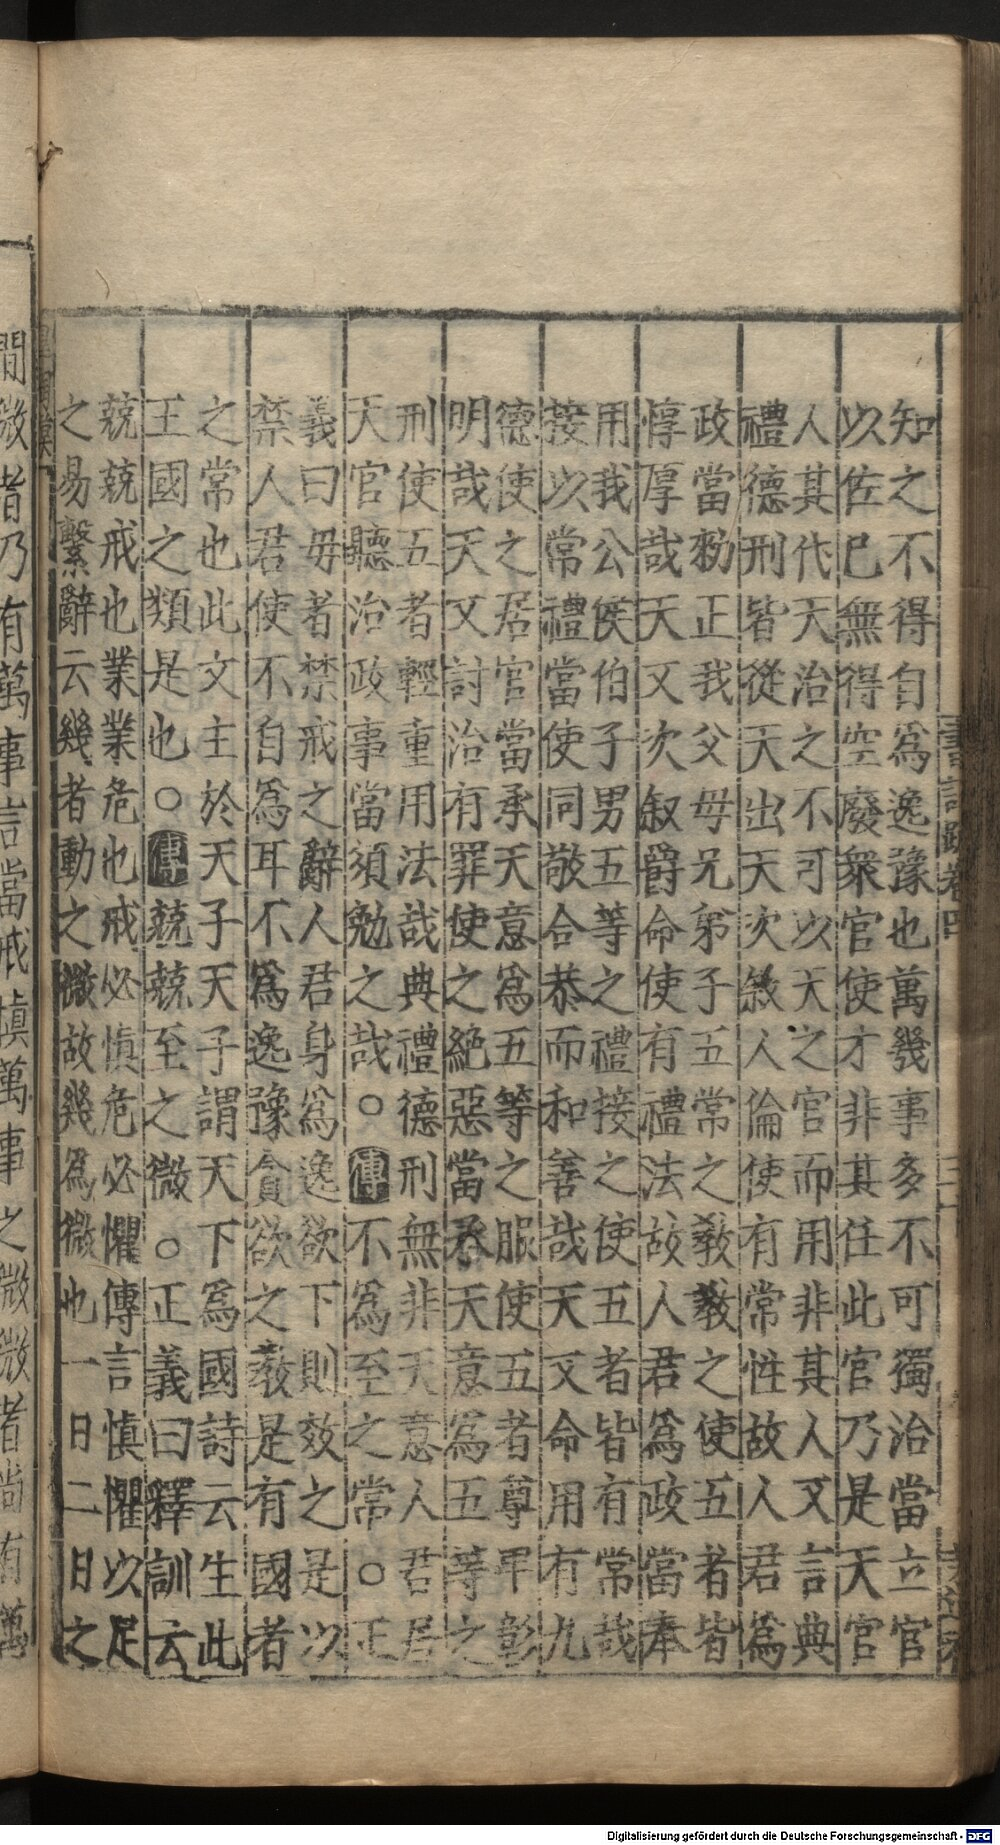 知之不得自爲逸豫也萬幾事多不可獨治當立官
以佐已無得空廢衆官使才非其任此官乃是天官
人其代天治之不可以天之官而用非其人又言典
禮德刑皆從天出天次敘人倫使有常性故人君爲
政當勑正我父母兄弟子五常之教教之使五者皆
惇厚哉天又次叙爵命使有禮法故人君爲政當奉
用我公侯伯子男五等之禮接之使五者皆有常哉
接以常禮當使同敬合恭而和善哉天又命用有九
德使之居官當承天意爲五等之服使五者尊卑彰
明哉天又討治有罪使之絶惡當承天意爲五等之
刑使五者輕重用法哉典禮德刑無非天意人君居
天官聽治政事當須勉之哉○傳不爲至之常○正
義曰毋者禁戒之辭人君身爲逸欲下則效之是以
禁人君使不自爲耳不爲逸豫貪欲之教是有國者
之常也此文主於天子天子謂天下爲國詩云生此
王國之類是也○傳兢兢至之微○正義曰釋訓云
兢兢戒也業業危也戒必慎危必懼傳言慎懼以足
之易繫辭云幾者動之微故幾爲微也一日二日之
間微者乃有萬事言當戒慎萬事之微微者尚有萬
Digitalisierung gefördert durch die Deutsche Forschungsgemeinschaft - DFG